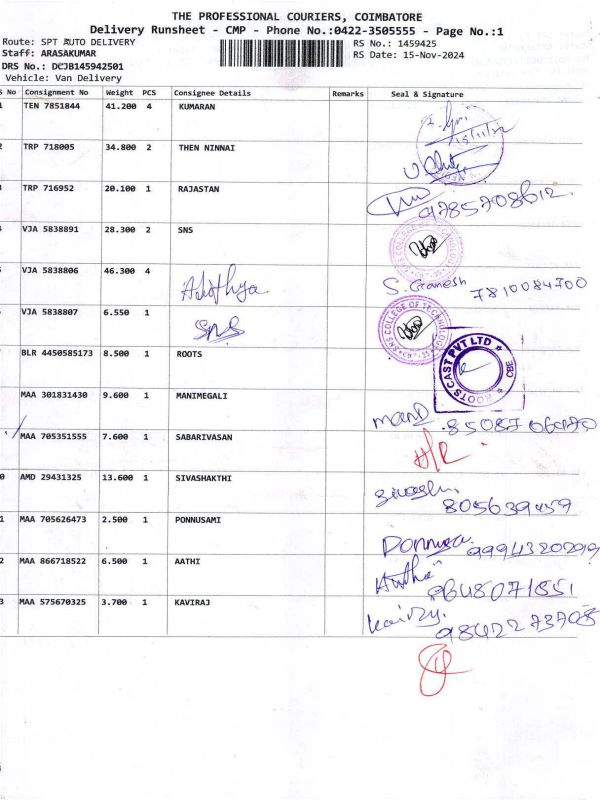 THE PROFESSIONAL COURIERS, COIMBATORE
Delivery Runsheet - CMP - Phone No.:0422-3505555 - Page No.:1
Route: SPT AUTO DELIVERY RS No.: 1459425
Staff: ARASAKUMAR RS Date: 15-Nov-2024
DRS No.: DCJB145942501
Vehicle: Van Delivery
S No Consignment No Weight PCS Consignee Details Remarks Seal & Signature
1 TEN 7851844 41.200 4 KUMARAN
2 TRP 718005 34.800 2 THEN NINNAI
3 TRP 716952 20.100 1 RAJASTAN 9785708612
VJA 5838891 28.300 2 SNS
VJA 5838806 46.300 4 Adithya S. Ganesh 7810084700
VJA 5838807 6.550 1 SNS
SNS COLLEGE OF TECHNOLOGY
7 BLR 4450585173 8.500 1 ROOTS
ROOTS CAST PVT LTD CBE
MAA 301831430 9.600 1 MANIMEGALI
MAA 705351555 7.600 1 SABARIVASAN
0 AMD 29431325 13.600 1 SIVASHAKTHI 805639459
1 MAA 705626473 2.500 1 PONNUSAMI 9994320299
2 MAA 866718522 6.500 1 AATHI
3 MAA 575670325 3.700 1 KAVIRAJ 9842273708